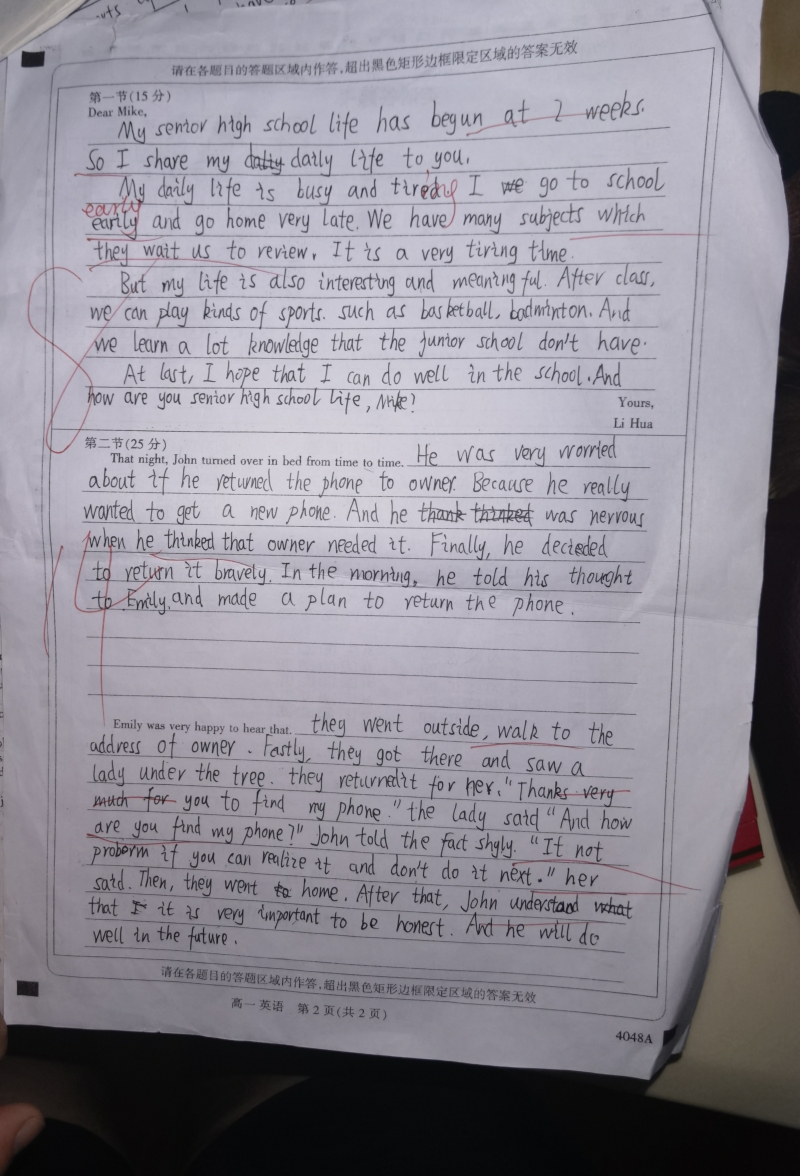 请在各题目的答题区域内作答,超出黑色矩形边框限定区域的答案无效
第一节(15分)
Dear Mike,
My senior high school life has begun at 2 weeks.
So I share my daily life to you.
My daily life is busy and tired. I go to school
early
earily and go home very late. We have many subjects which
they wait us to review. It is a very tiring time.
But my life is also interesting and meaningful. After class,
we can play kinds of sports. such as basketball, badminton. And
we learn a lot knowledge that the junior school don't have.
At last, I hope that I can do well in the school. And
how are you senior high school life, Mike?
Yours,
Li Hua
第二节(25分)
That night, John turned over in bed from time to time. He was very worried
about if he returned the phone to owner. Because he really
wanted to get a new phone. And he thank thinked was nervous
when he thinked that owner needed it. Finally, he decieded
to return it bravely. In the morning, he told his thought
to Emily, and made a plan to return the phone.
Emily was very happy to hear that. they went outside, walk to the
address of owner. Fastly, they got there and saw a
lady under the tree. they returned it for her. "Thanks very
much for you to find my phone." the lady said "And how
are you find my phone?" John told the fact shyly. "It not
proborm if you can realize it and don't do it next." her
said. Then, they went to home. After that, John understand what
that it is very important to be honest. And he will do
well in the future.
请在各题目的答题区域内作答,超出黑色矩形边框限定区域的答案无效
高一英语 第2页(共2页)
4048A